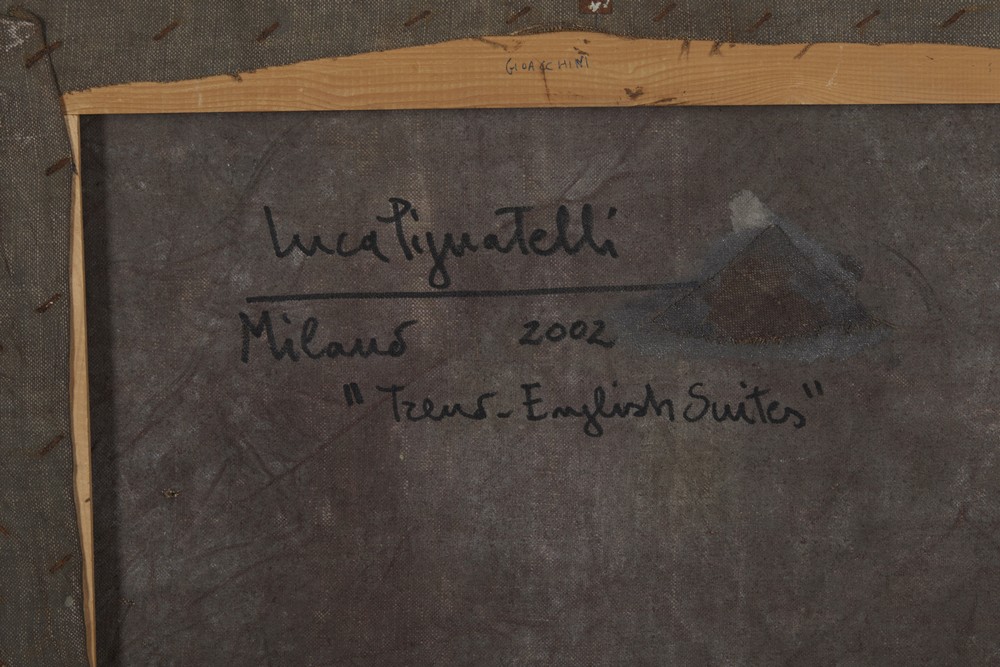 GIOACCHINI
Luca Pignatelli
Milano 2002
"Treno-English Suites"